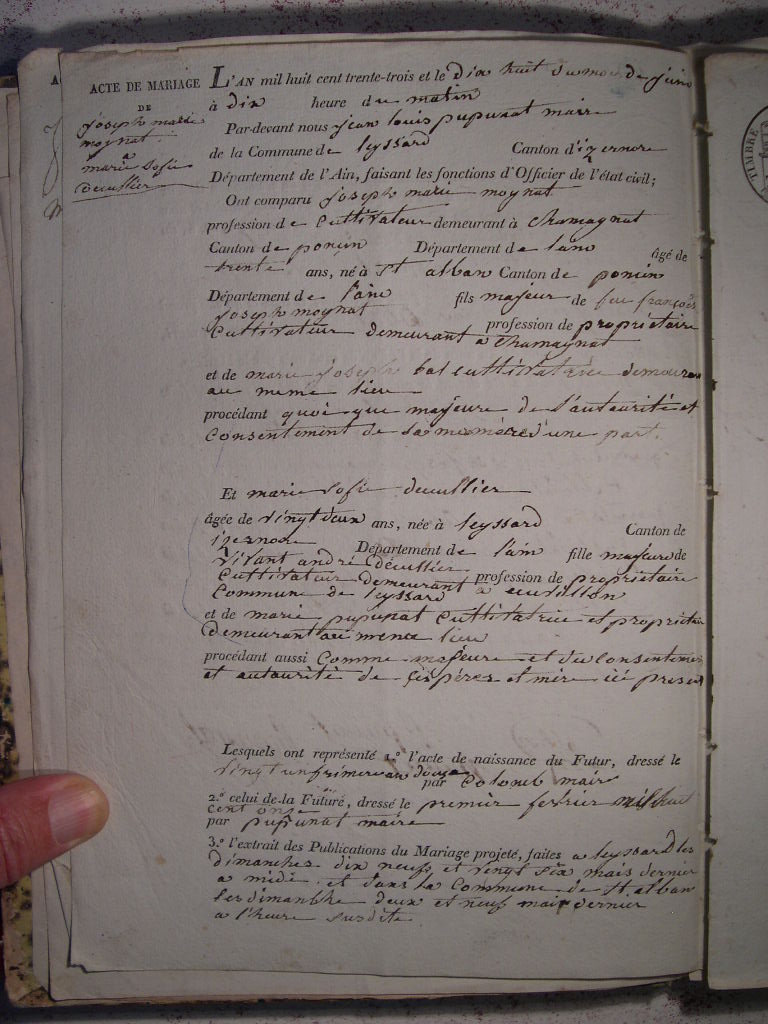 ACTE DE MARIAGE
DE
joseph marie
moynat
a
marie sofie
decullier
L'AN mil huit cent trente-trois et le dix huit du mois de juin
à dix heure du matin
Par-devant nous jean louis pupunat maire
de la Commune de leyssard Canton d'izernore
Département de l'Ain, faisant les fonctions d'Officier de l'état civil;
Ont comparu joseph marie moynat
profession de Cultivateur demeurant à Chamagnat
Canton de poncin Département de lain âgé de
trente ans, né à St alban Canton de poncin
Département de l'ain fils majeur de feu françois
joseph moynat profession de propriétaire
Cultivateur demeurant a Chamagnat
et de marie joseph bal cultivatrice demeuran
au meme lieu
procédant quoi que majeure de l'autaurité et
Consentement de sa mere d'une part.
Et marie sofie decullier
âgée de vingt deux ans, née à leyssard Canton de
izernore Département de l'ain fille majeure de
vivant andré décullier profession de propriétaire
Cultivateur demeurant a
Commune de leyssard
et de marie pupunat Cultivatrice et proprieta
demeurant au meme lieu
procédant aussi Comme majeure et du Consenteme
et autaurité de ses péres et mére ici presen
Lesquels ont représenté 1.º l'acte de naissance du Futur, dressé le
vingt un frimere an douze par Colomb maire
2.º celui de la Future, dressé le premier fevrier mil huit
cent onze
par pupunat maire
3.º l'extrait des Publications du Mariage projeté, faites a leyssard les
dimanches dix neuf et vingt six mais dernier
a midi et dans la Commune de St. alban
les dimanche deux et neuf mair dernier
a l'heure susdite
TIMBRE